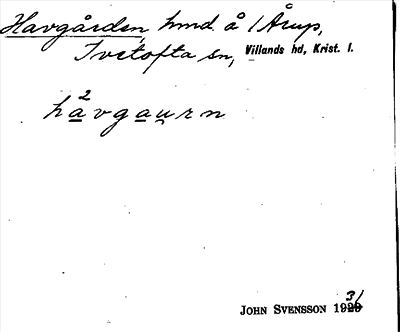 Havgården, hmd å 1 Årup,
Ivetofta sn, Villands hd, Krist. l.
2
havgaurn
JOHN SVENSSON 1931